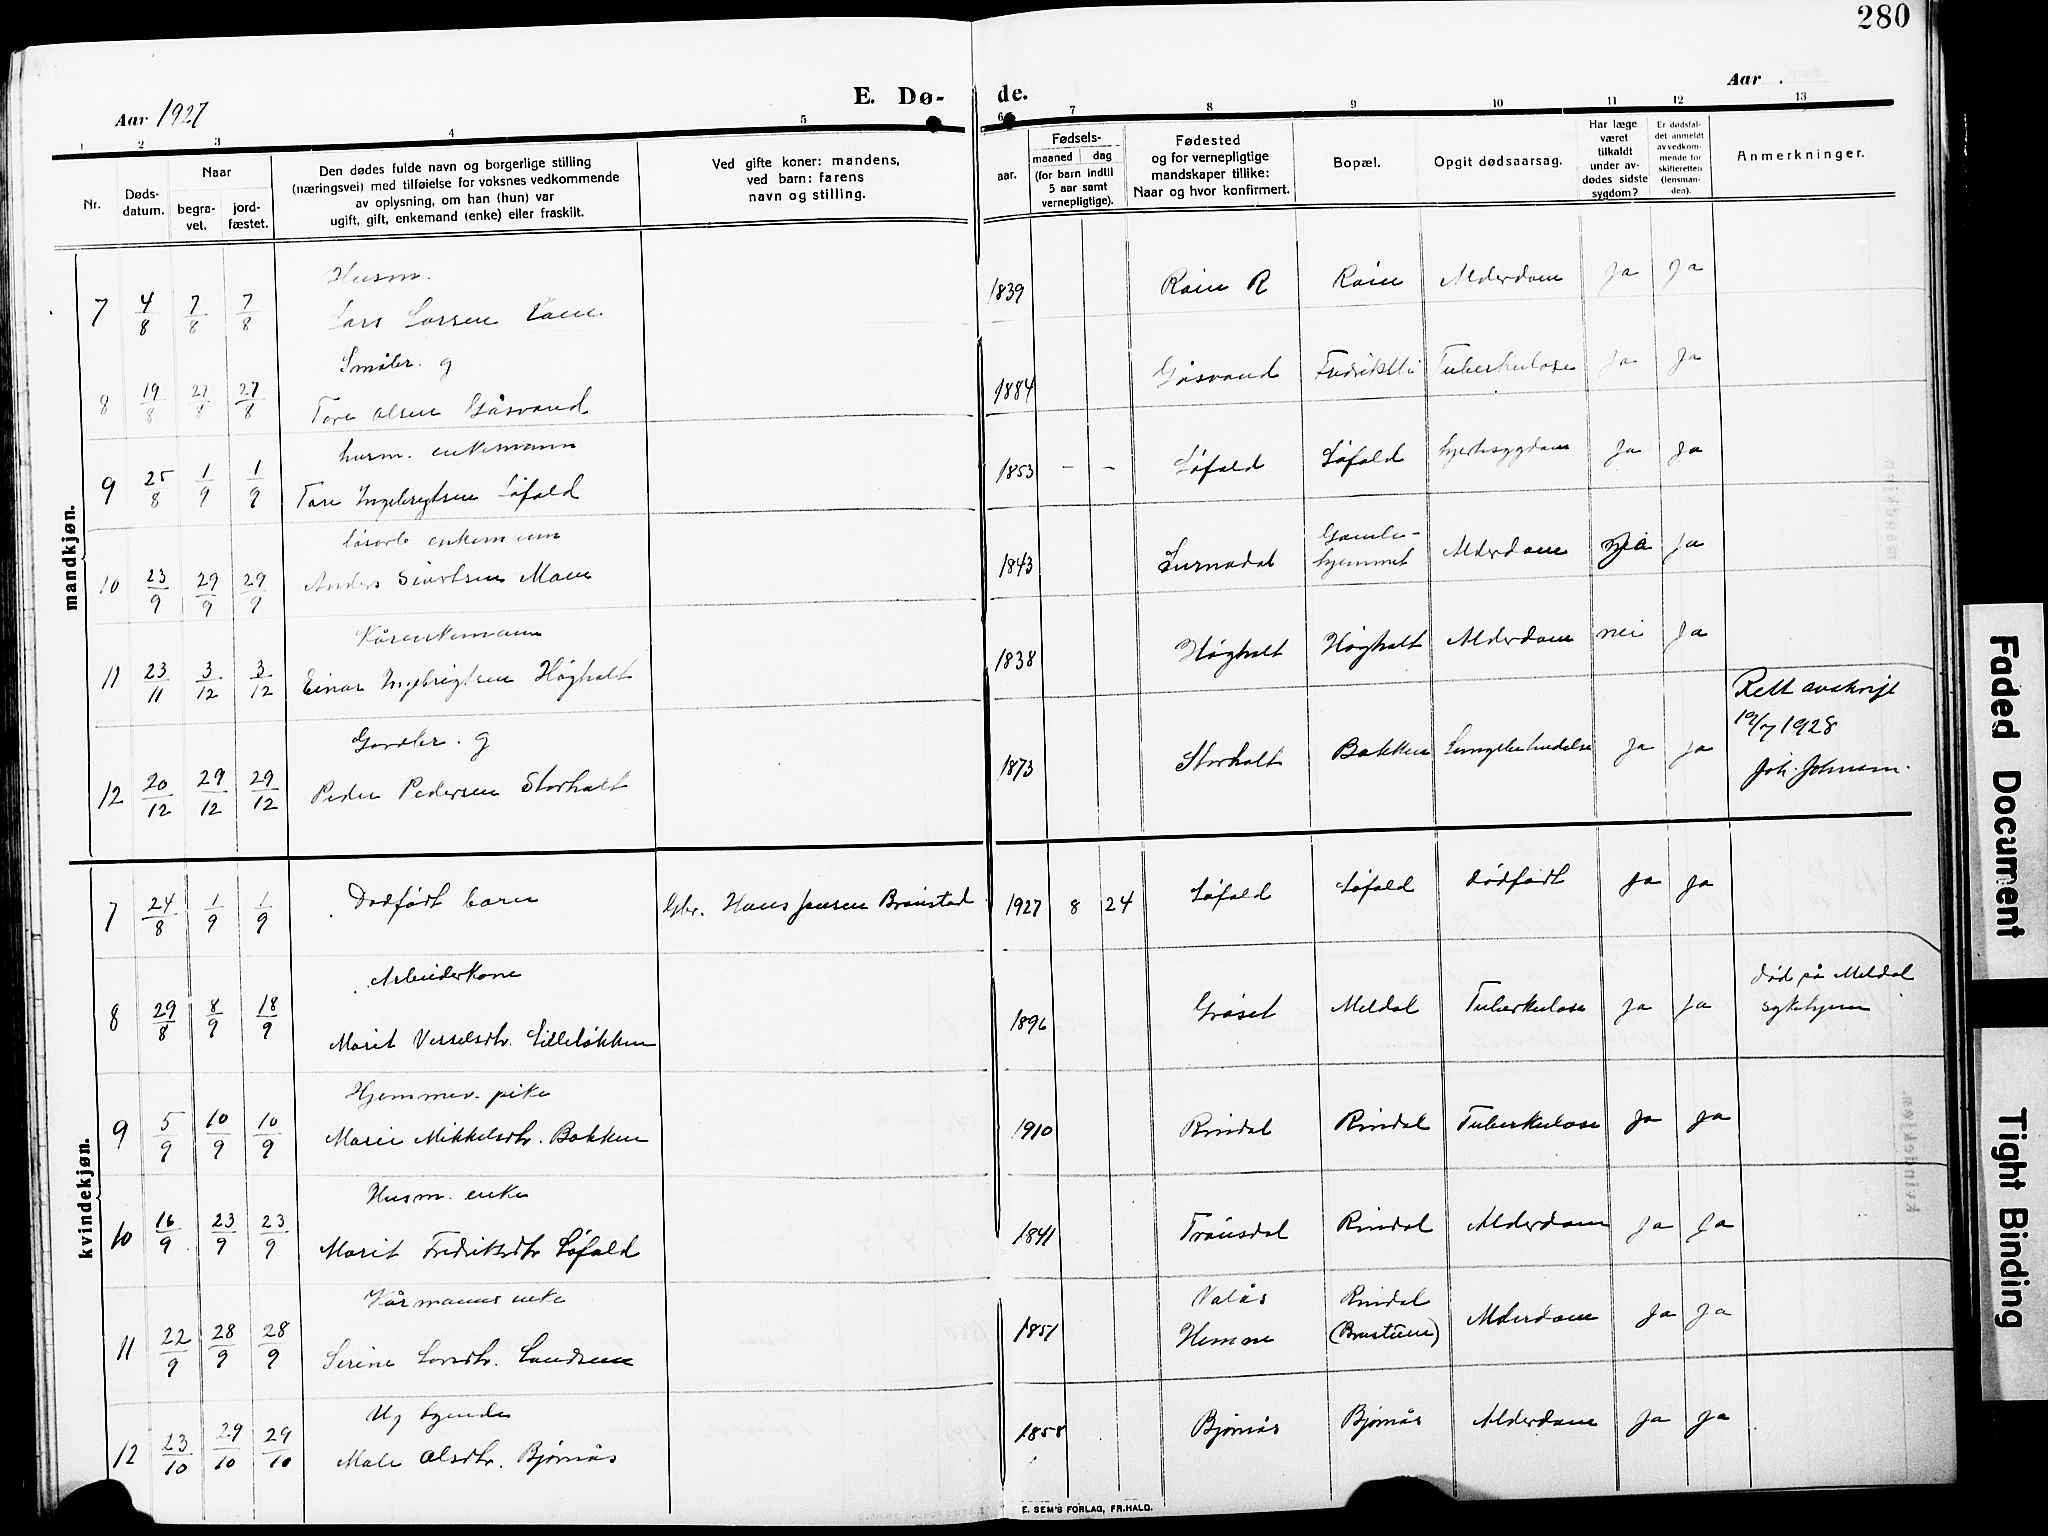 280
Aar 1927
E. Dø-
de.
Aar .
1 2 3 4 5 6 7 8 9 10 11 12 13
Nr.
Døds-
datum.
Naar
begra-
vet.
jord-
fæstet.
Den dødes fulde navn og borgerlige stilling
(næringsvei) med tilføielse for voksnes vedkommende
av oplysning, om han (hun) var
ugift, gift, enkemand (enke) eller fraskilt.
Ved gifte koner: mandens,
ved barn: farens
navn og stilling.
aar.
Fødsels-
maaned dag
(for barn indtil
5 aar samt
vernepligtige).
Fødested
og for vernepligtige
mandskaper tillike:
Naar og hvor konfirmert.
Bopæl.
Opgit dødsaarsag.
Har læge
været
tilkaldt
under av-
dødes sidste
sygdom?
Er dødsfal-
det anmeldt
av vedkom-
mende for
skifteretten
(lensman-
den).
Anmerkninger.
mandkjøn.
Husm.
7 4/8 7/8 7/8 Lars Larsen Røen 1839 Røen R Røen Alderdom Ja Ja
Småbr. g
8 19/8 27/8 27/8 Tore Olsen Gåsvand 1884 Gåsvand Fredriksli Tuberkulose Ja Ja
husm. enkemann
9 25/8 1/9 1/9 Tore Ingebrigtsen Løfald 1853 - - Løfald Løfald hjertesygdom Ja Ja
løsarb enkemann
10 23/9 29/9 29/9 Anders Sivertsen Moen 1843 Surnadal Gamle-
hjemmet Alderdom nei Ja
Kårenkemann
11 23/11 3/12 3/12 Einar Ingebrigtsen Høgholt 1838 Høgholt Høgholt Alderdom nei Ja
Gardbr. g
12 20/12 29/12 29/12 Peder Pedersen Storholt 1873 Storholt Bakken Lungebetendelse Ja Ja
Rett avskrift
19/7 1928
Joh. Johnsen.
kvindekjøn.
7 24/8 1/9 1/9 Dødfødt barn Gbr. Hans Jensen Brønstad 1927 8 24 Løfald Løfald Dødfødt Ja Ja
Arbeiderkone
8 29/8 8/9 18/9 Marit Vesselsdtr. Lilleløkken 1896 Grøset Meldal Tuberkulose Ja Ja
Død på Meldal
sykehjem
Hjemmev. pike
9 5/9 10/9 10/9 Marie Mikkelsdtr. Bakken 1910 Rindal Rindal Tuberkulose Ja Ja
Husm. enke
10 16/9 23/9 23/9 Marit Fredriksdtr Løfald 1841 Trønsdal Rindal Alderdom Ja Ja
Kårmanns enke
11 22/9 28/9 28/9 Serine Larsdtr. Landsem 1851 Valås
Hemne Rindal
(Brustuen) Alderdom Ja Ja
Ug bygende
12 23/10 29/10 29/10 Mali Olsdtr. Bjørnås 1858 Bjørnås Bjørnås Alderdom Ja Ja
E. SEM'S FORLAG, FR.HALD.
Faded Document
Tight Binding